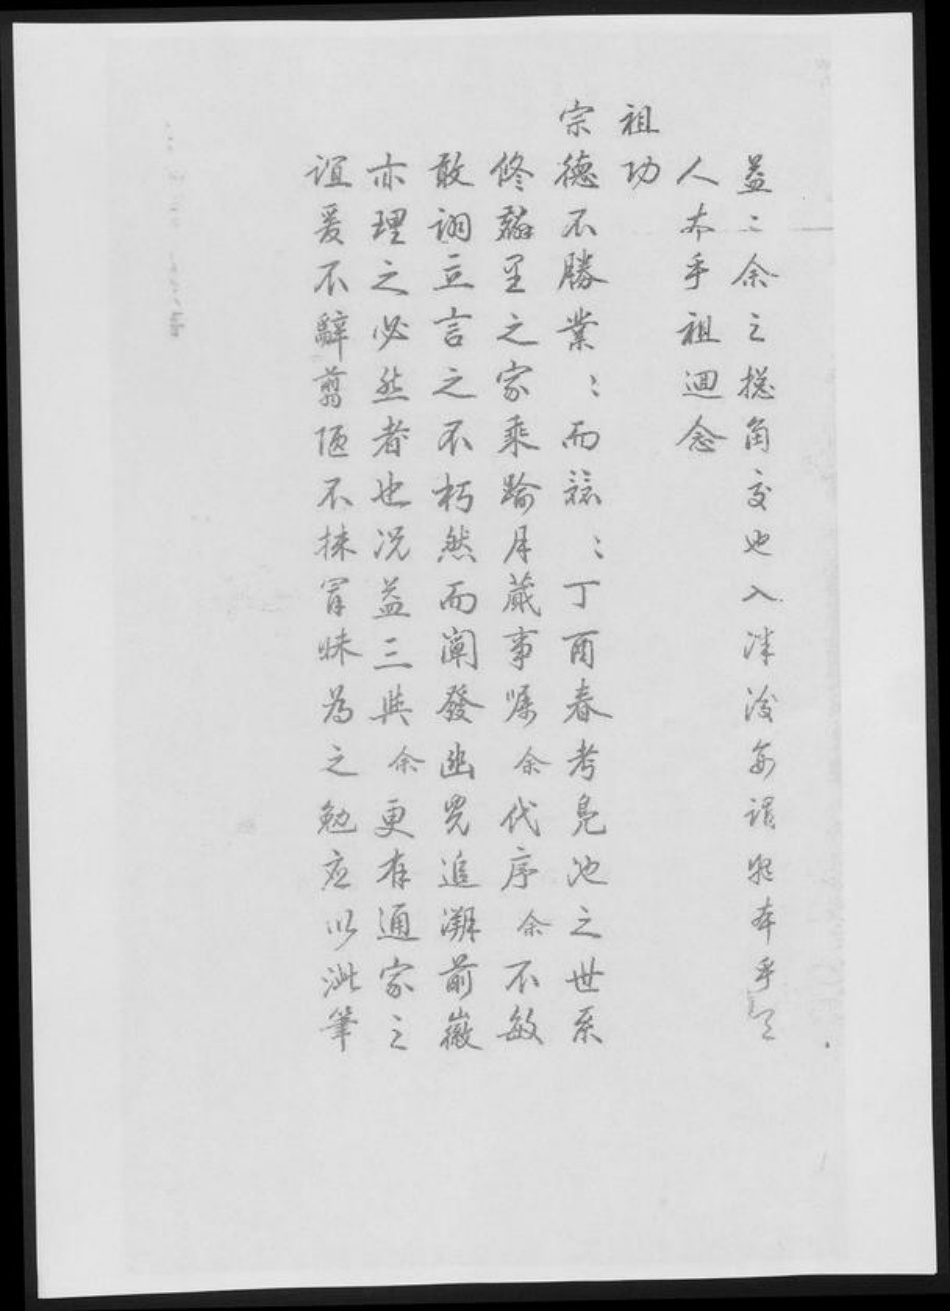 益〻余之總角交也入泮後每謂物本乎天
人本乎祖迴念
祖功
宗德不勝業〻而兢〻丁酉春考凫池之世系
修瀔里之家乘踰月蕆事嘱余代序余不敏
敢詡立言之不朽然而闡發幽光追溯前徽
亦理之必然者也况益三與余更有通家之
誼爰不辭翦陋不揣冒昧為之勉應以泚筆